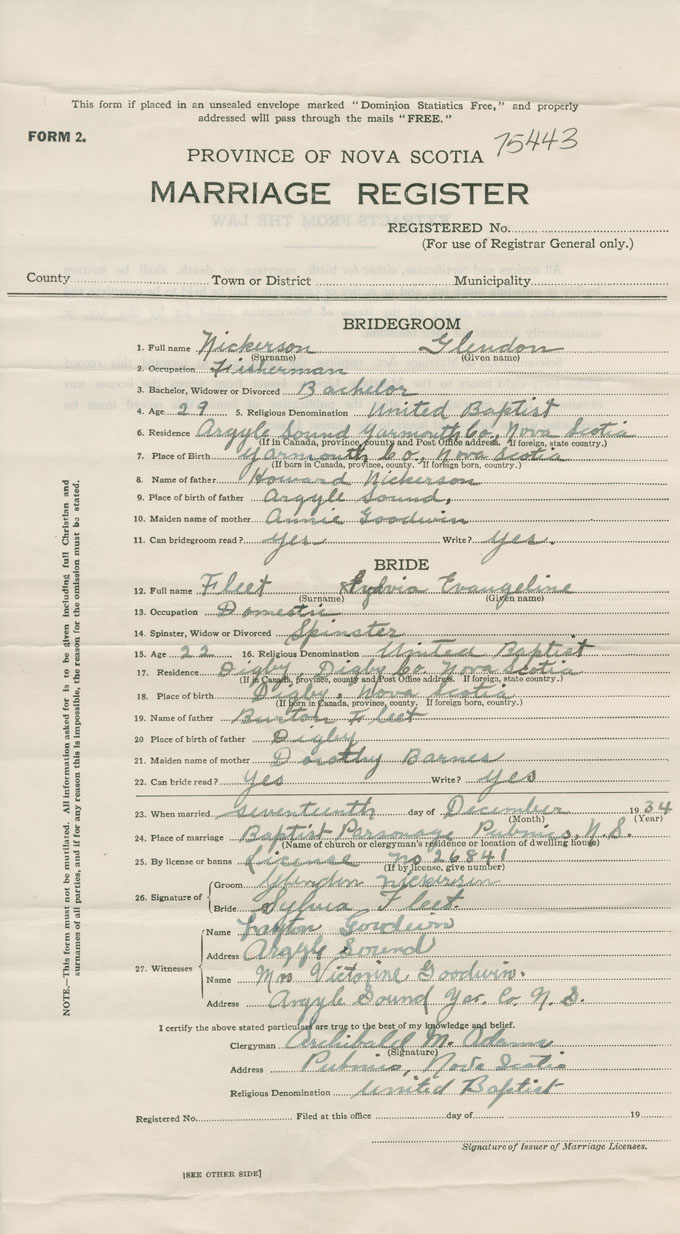 This form if placed in an unsealed envelope marked "Dominion Statistics Free," and properly
addressed will pass through the mails "FREE."
FORM 2.
75443
PROVINCE OF NOVA SCOTIA
MARRIAGE REGISTER
REGISTERED No.
(For use of Registrar General only.)
County Town or District Municipality
BRIDEGROOM
1. Full name Nickerson Glendon
(Surname) (Given name)
2. Occupation Fisherman
3. Bachelor, Widower or Divorced Bachelor
4. Age 29 5. Religious Denomination United Baptist
6. Residence Argyle Sound Yarmouth Co., Nova Scotia
(If in Canada, province, county and Post Office address. If foreign, state country.)
7. Place of Birth Yarmouth Co., Nova Scotia
(If born in Canada, province, county. If foreign born, country.)
8. Name of father Howard Nickerson
9. Place of birth of father Argyle Sound,
10. Maiden name of mother Annie Goodwin
11. Can bridegroom read? Yes Write? Yes.
BRIDE
12. Full name Fleet Sylvia Evangeline
(Surname) (Given name)
13. Occupation Domestic
14. Spinster, Widow or Divorced Spinster
15. Age 22 16. Religious Denomination United Baptist
17. Residence Digby, Digby Co. Nova Scotia
(If in Canada, province, county and Post Office address. If foreign, state country.)
18. Place of birth Digby, Nova Scotia
(If born in Canada, province, county. If foreign born, country.)
19. Name of father Burton Fleet
20 Place of birth of father Digby
21. Maiden name of mother Dorothy Barnes
22. Can bride read? Yes Write? Yes
23. When married seventeenth day of December 1934
(Month) (Year)
24. Place of marriage Baptist Parsonage Pubnico, N.S.
(Name of church or clergyman's residence or location of dwelling house)
25. By license or banns License No 26841
(If by license, give number)
26. Signature of
Groom Glendon Nickerson
Bride Sylvia Fleet.
27. Witnesses
Name Layton Goodwin
Address Argyle Sound
Name Mrs Victorine Goodwin.
Address Argyle Sound Yar. Co. N.S.
I certify the above stated particulars are true to the best of my knowledge and belief.
Clergyman Archibald M. Adams
(Signature)
Address Pubnico, Nova Scotia
Religious Denomination United Baptist
Registered No. Filed at this office day of 19
Signature of Issuer of Marriage Licenses.
[SEE OTHER SIDE]
NOTE.—This form must not be mutilated. All information asked for is to be given including full Christian and
surnames of all parties, and if for any reason this is impossible, the reason for the omission must be stated.